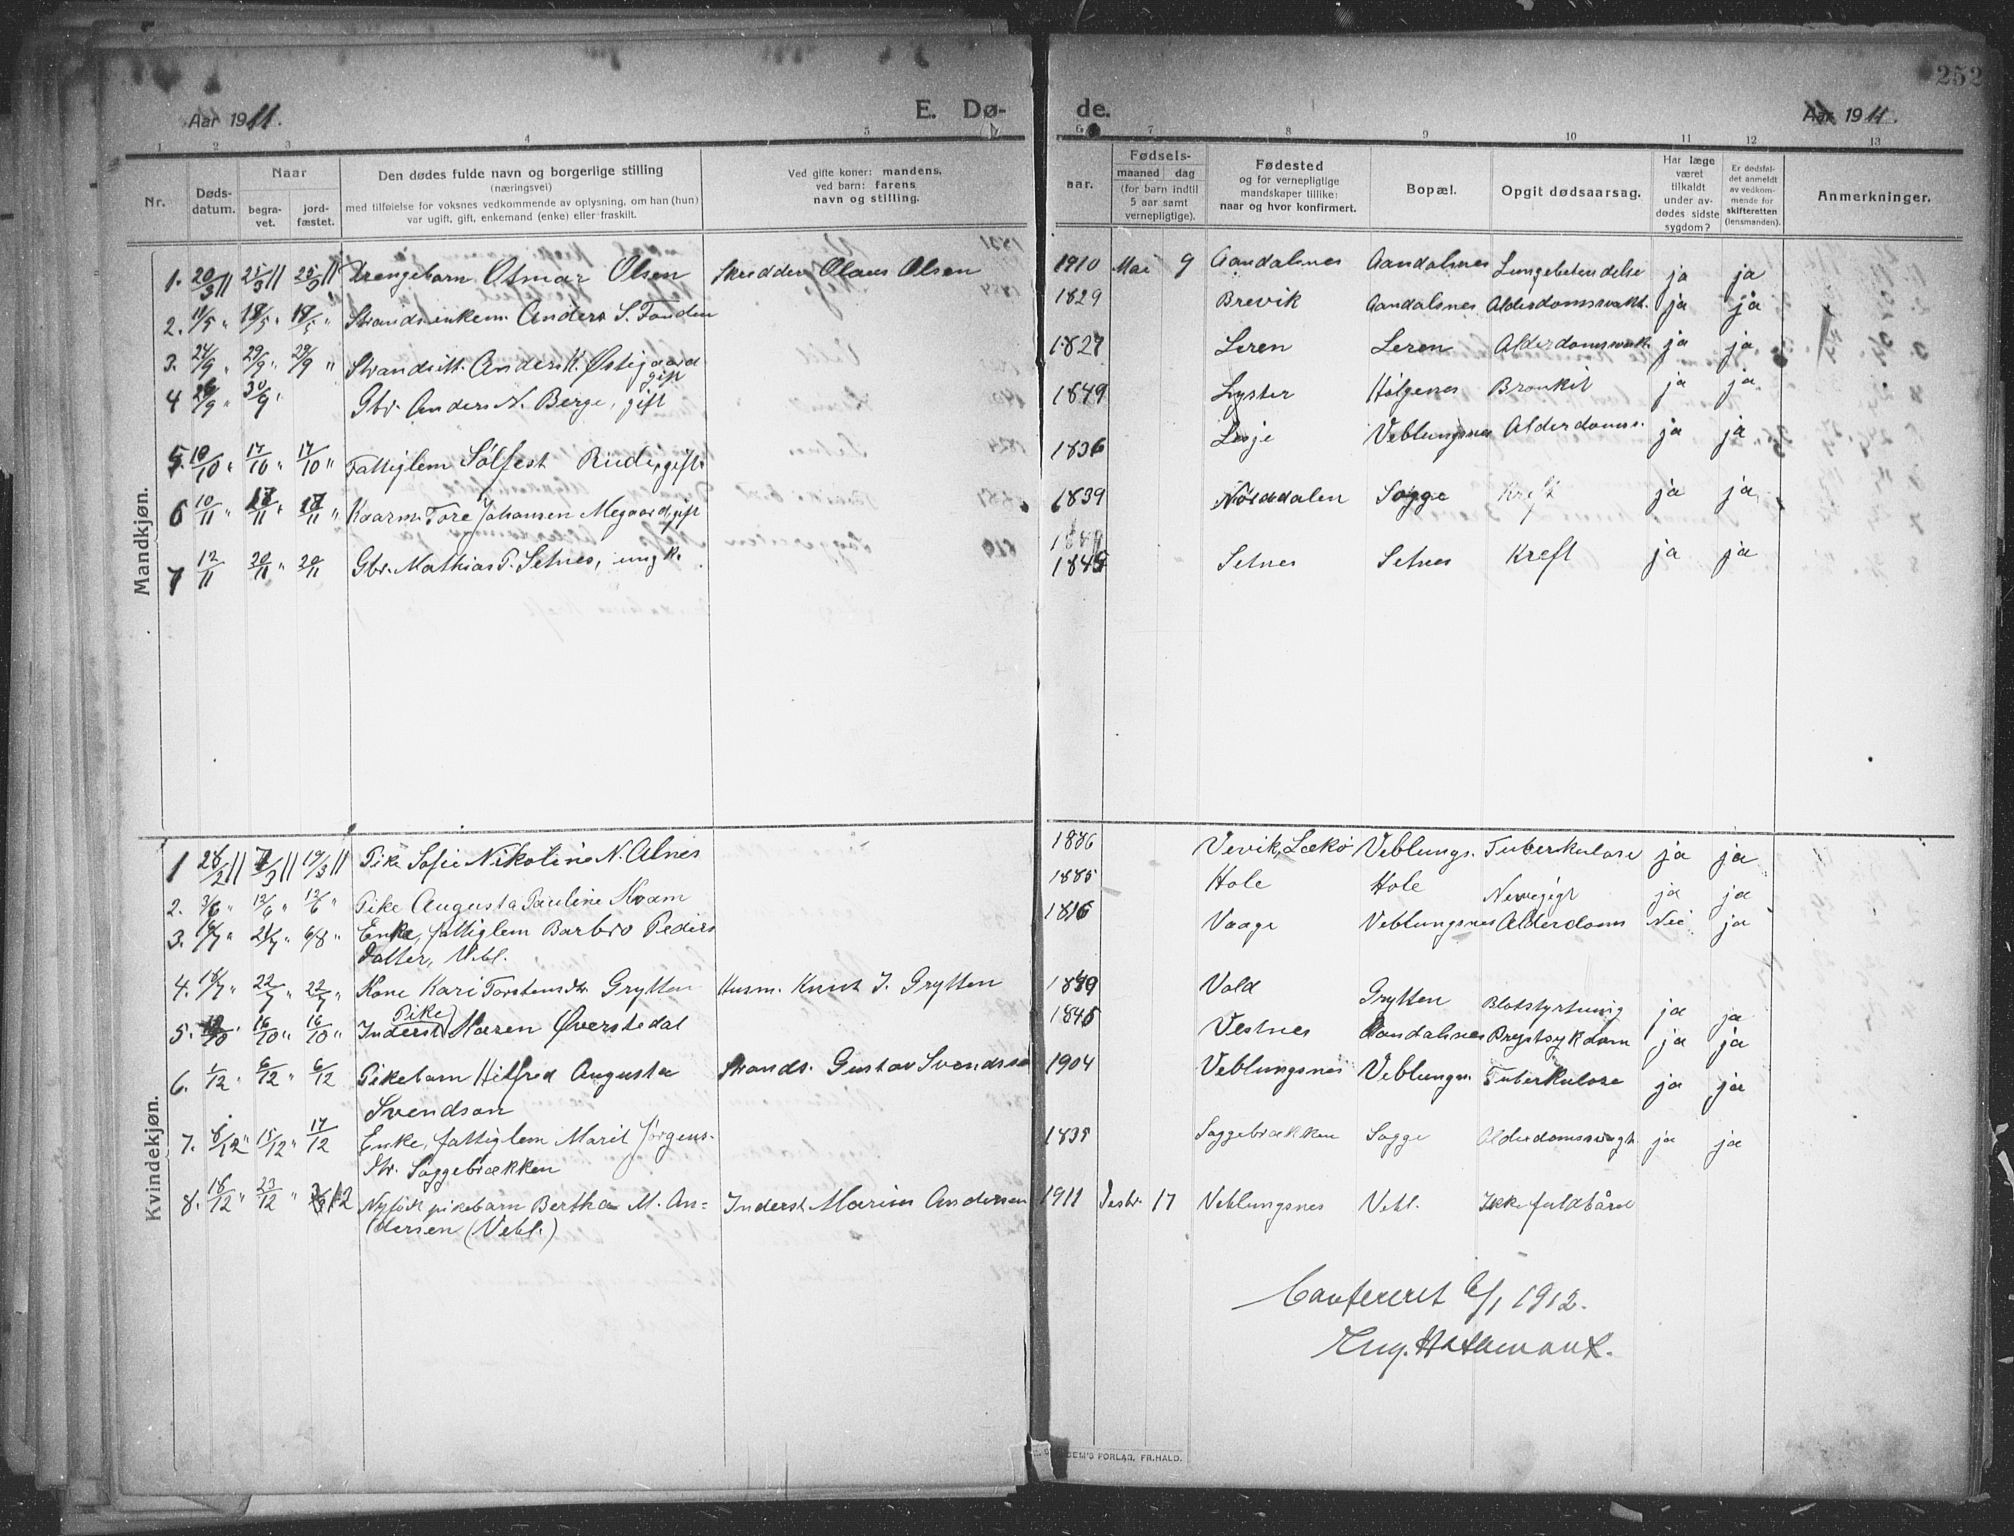 252
Aar 1911.
E. Dø-
de.
Aar 1911.
1 2 3 4 5 6 7 8 9 10 11 12 13
Nr.
Døds-
datum.
Naar
begra-
vet.
jord-
fæstet.
Den dødes fulde navn og borgerlige stilling
(næringsvei)
med tilføielse for voksnes vedkommende av oplysning, om han (hun)
var ugift, gift, enkemand (enke) eller fraskilt.
Ved gifte koner: mandens,
ved barn: farens
navn og stilling.
aar.
Fødsels-
maaned dag
(for barn indtil
5 aar samt
vernepligtige).
Fødested
og for vernepligtige
mandskaper tillike:
naar og hvor konfirmert.
Bopæl.
Opgit dødsaarsag.
Har læge
været
tilkaldt
under av-
dødes sidste
sygdom?
Er dødsfal-
det anmeldt
av vedkom-
mende for
skifteretten
(lensmanden).
Anmerkninger.
Mandkjøn.
1. 20/3 11 Drengebarn Otmar Olsen Skrædder Olaus Olsen 1910 Mai 9 Aandalsnes Aandalsnes Lungebetendelse ja ja
2. 11/5 " 18/5 " 18/5 " Strands. enkem. Anders S. Fonden 1829 Brevik Aandalsnes Alderdomssvakh. ja ja
3. 24/9 " 29/9 " 29/9 " Strandsitt. Anders K. Østigaard gift 1827 Leren Leren Alderdomssvakh. ja ja
4 26/9 " 30/9 " Gbr. Anders N. Berge, gift 1849 Lyster Holgenes Bronkit ja ja
5. 10/10 " 17/10 " 17/10 " Fattiglem Solfest Riide, gift. 1836 Lesje Veblungsnes Alderdoms. ja ja
6 10/11 " 17/11 " 17/11 " Kaarm. Tore Johansen Megaard, gift 1839 Norddalen Sogge Kreft ja ja
7 12/11 20/11 " 20/11 Gbr. Mathias P. Setnes, ungk. 1845 Setnes Setnes Kreft ja ja
Kvindekjøn.
1 28/2 11 7/3 11 19/3 11 Pike Sofie Nikoline N. Alnes 1886 Vevik, Lekø Veblungs. Tuberkulose ja ja
2. 3/6 " 12/6 " 12/6 " Pike Augusta Pauline Kvam 1885 Hole Hole ja ja
3. " 21/7 " 6/8 " Enke, fattiglem Barbro Peders
datter, Vebl. 1816 Vaage Veblungsnes Alderdoms Nei ja
4. 18/7 " 22/7 " 22/7 " Kone Kari Torstensdtr. Grytten Husm. Knut J. Grytten Vold Grytten Blodstyrtning ja ja
5. 16/10 " 16/10 " Pike
Inderst Maren Øverstedal 1845 Vestnes Aandalsnes Brystsykdom ja ja
6. 1/12 " 6/12 " 6/12 Pikebarn Hilfred Augusta
Svendsen Strands. Gustav Svendsen 1904 Veblungsnes Veblungsn. Tuberkulose ja ja
7. 8/12 " 15/12 " 17/12 Enke, fattiglem Marit Jørgens-
dtr. Soggebrækken 1835 Soggebrækken Sogge Alderdomssvagh. ja ja
8. 18/12 " 23/12 " Nyfødt pikebarn Bertha M. An=
dersen (Vebl.) Inderst Marius Andersen 1911 17 Veblungsnes Vebl. Ikke fuldbåret
Confereret 6/1 1912.
FORLAG, FR. HALD.